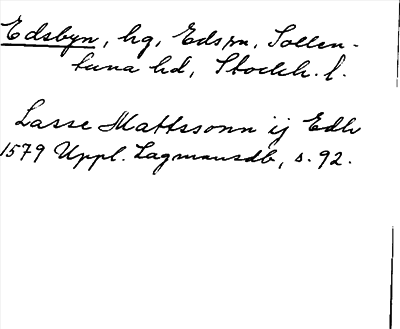 Edsbyn, hg, Eds sn, Sollen-
tuna hd, Stockh. l.
Lasse Mattssonn ij Edh
1579 Uppl. Lagmansdb, s. 92.